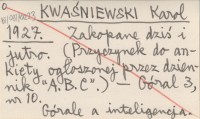 KWAŚNIEWSKI Karol
1927. Zakopane dziś i
jutro. (Przyczynek do an-
kiety ogłoszonej przez dzien-
nik "A.B.C.") — Góral 3,
nr 10.
Górale a inteligencja.